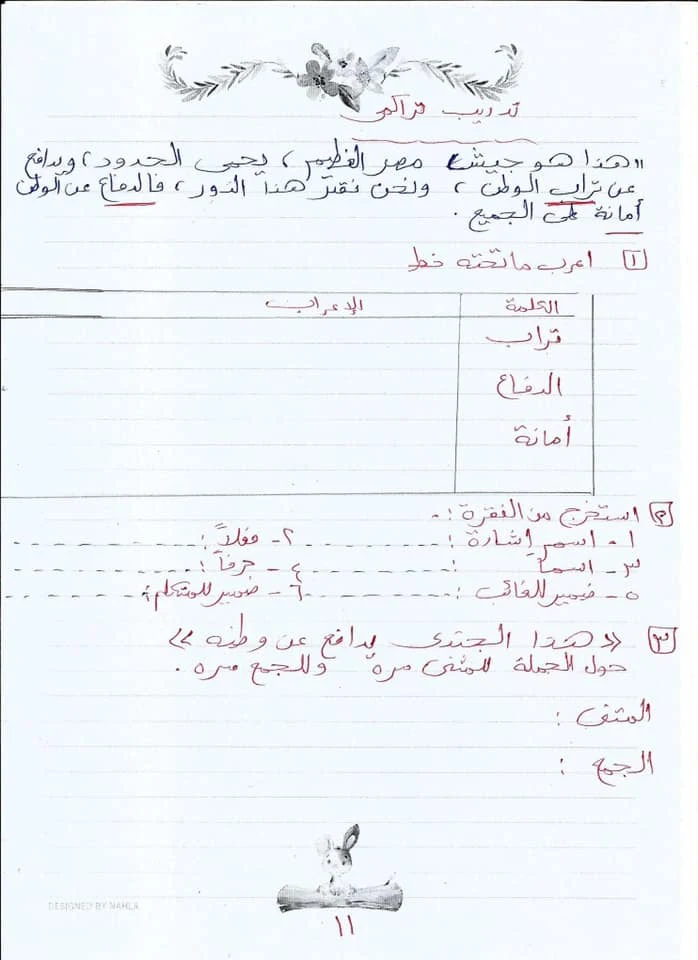 تدريب تراكمى
"هذا هو جيش مصر العظيم، يحمى الحدود، ويدافع
عن تراب الوطن، ونحن نقدر هذا الدور، فالدفاع عن الوطن
أمانة على الجميع.
١ اعرب ما تحته خط
الكلمة الإعراب
تراب
الدفاع
أمانة
٢ استخرج من الفقرة :-
١- اسم إشارة : ٢- فعلاً :
٣- اسماً : ٤- حرفاً :
٥- ضمير للغائب : ٦- ضمير للمتكلم :
٣ «هذا الجندى يدافع عن وطنه»
حول الجملة للمثنى مرة وللجمع مره .
المثنى :
الجمع :
DESIGNED BY NAHLA
١١